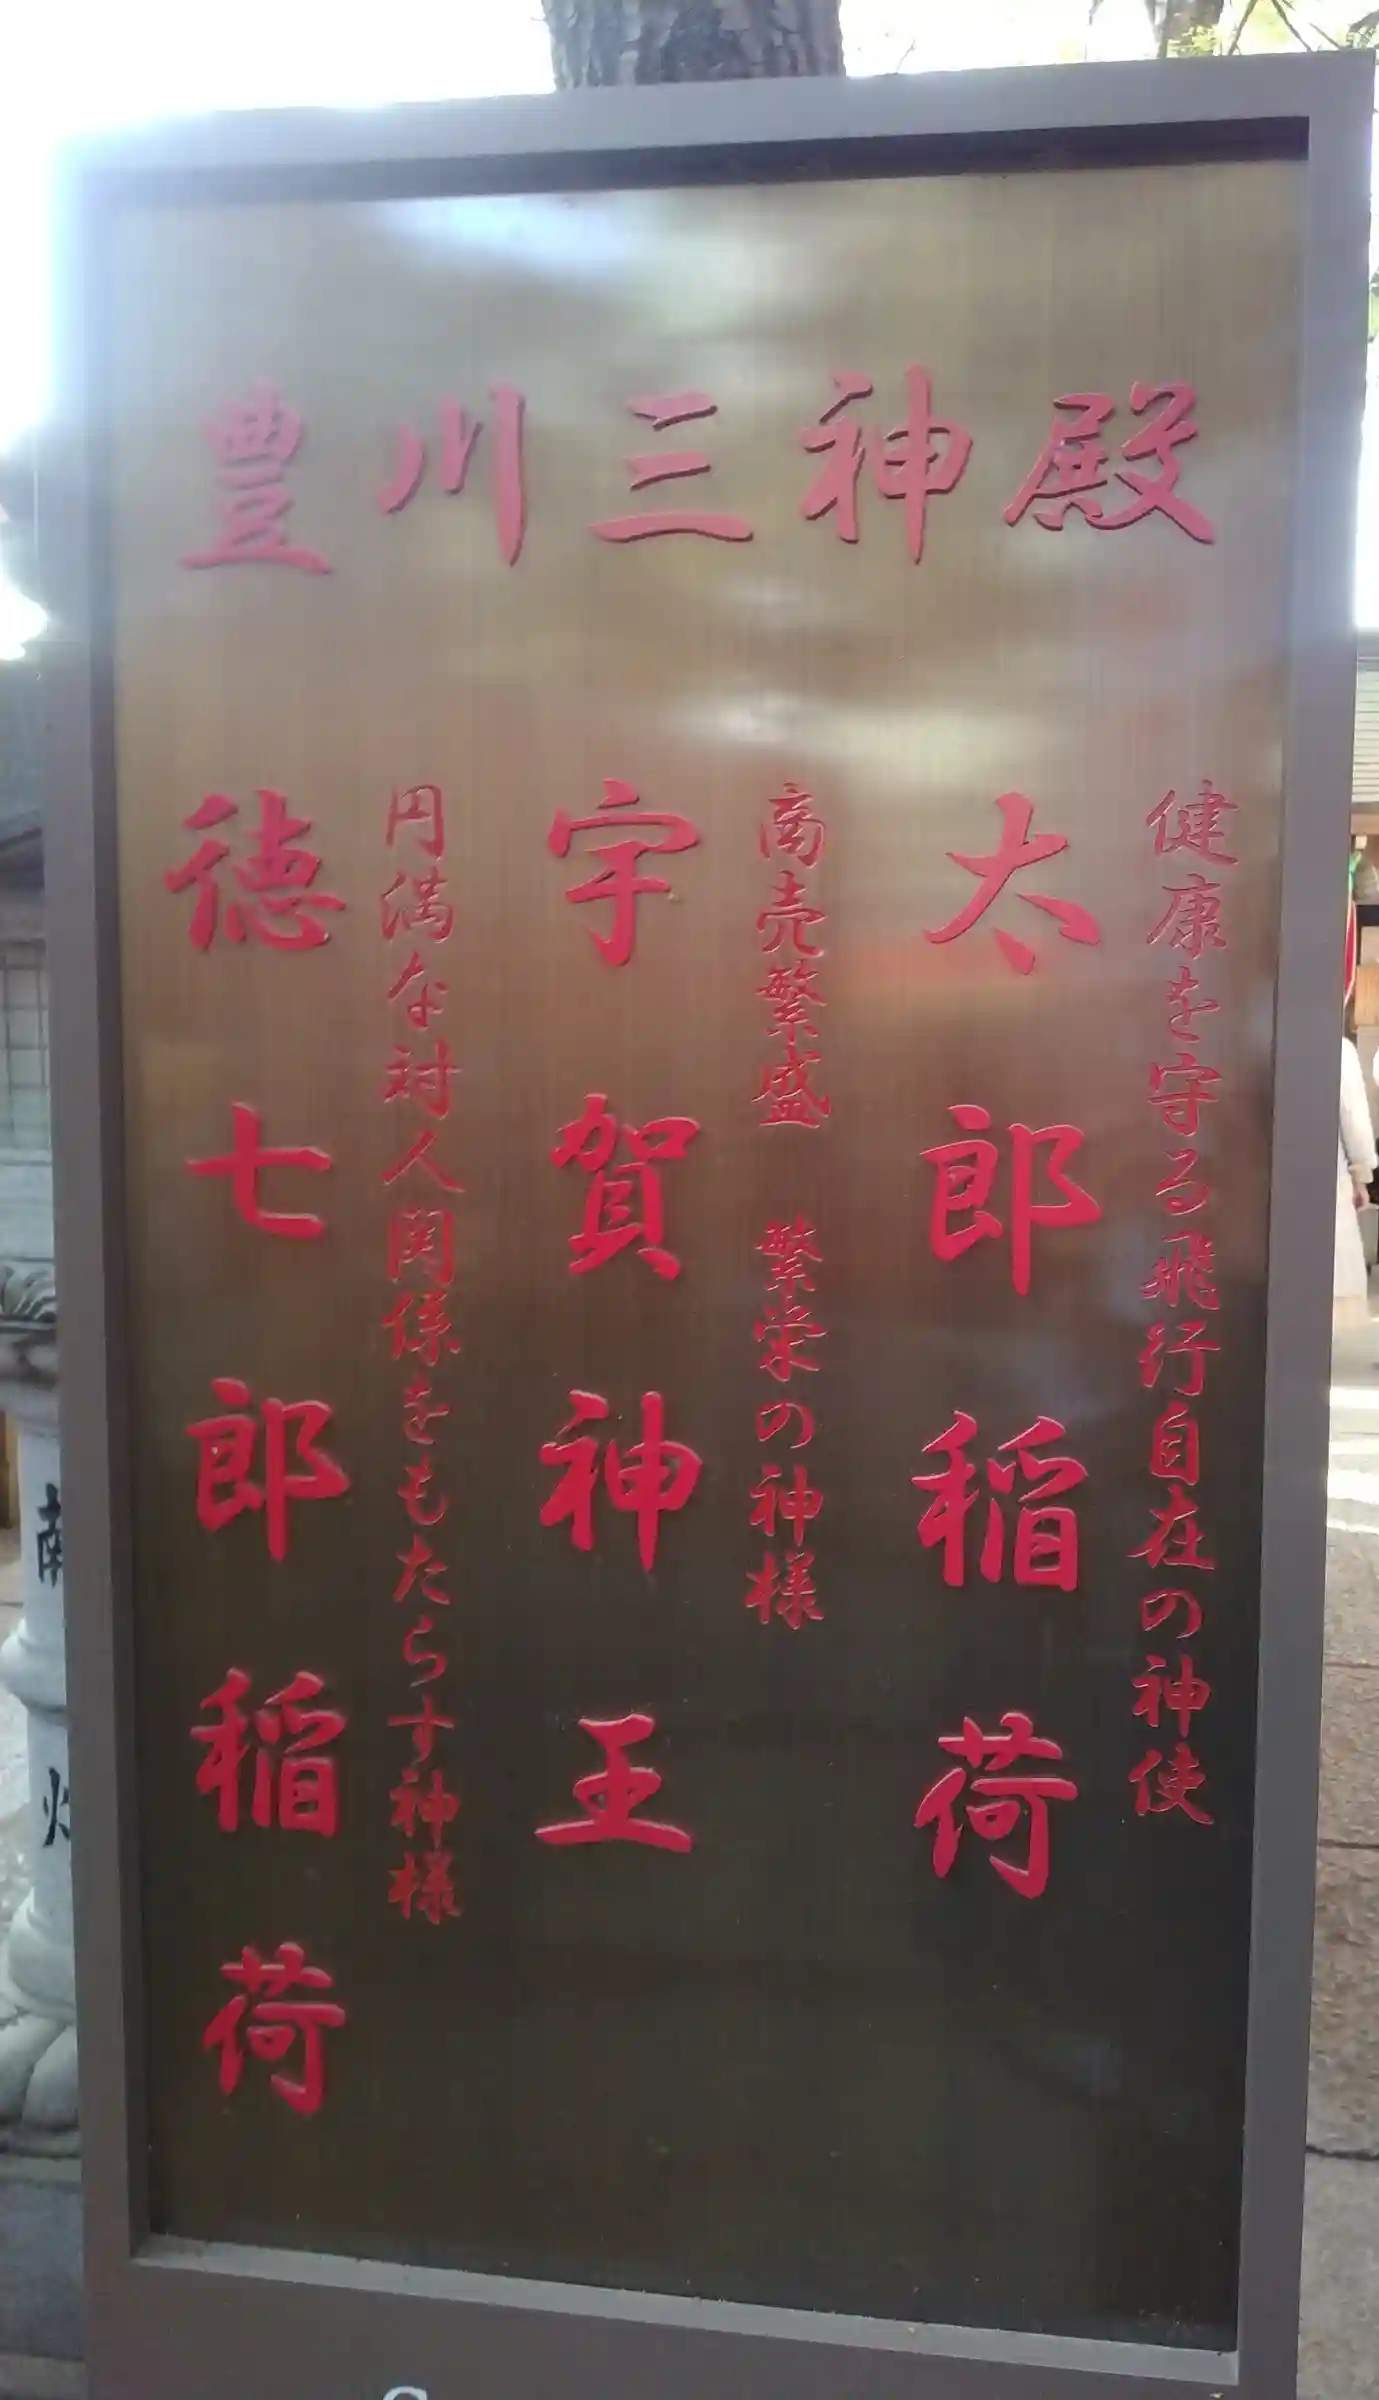 豊川三神殿
健康を守る飛行自在の神使
太郎稲荷
商売繁盛 繁栄の神様
宇賀神王
円満な対人関係をもたらす神様
徳七郎稲荷